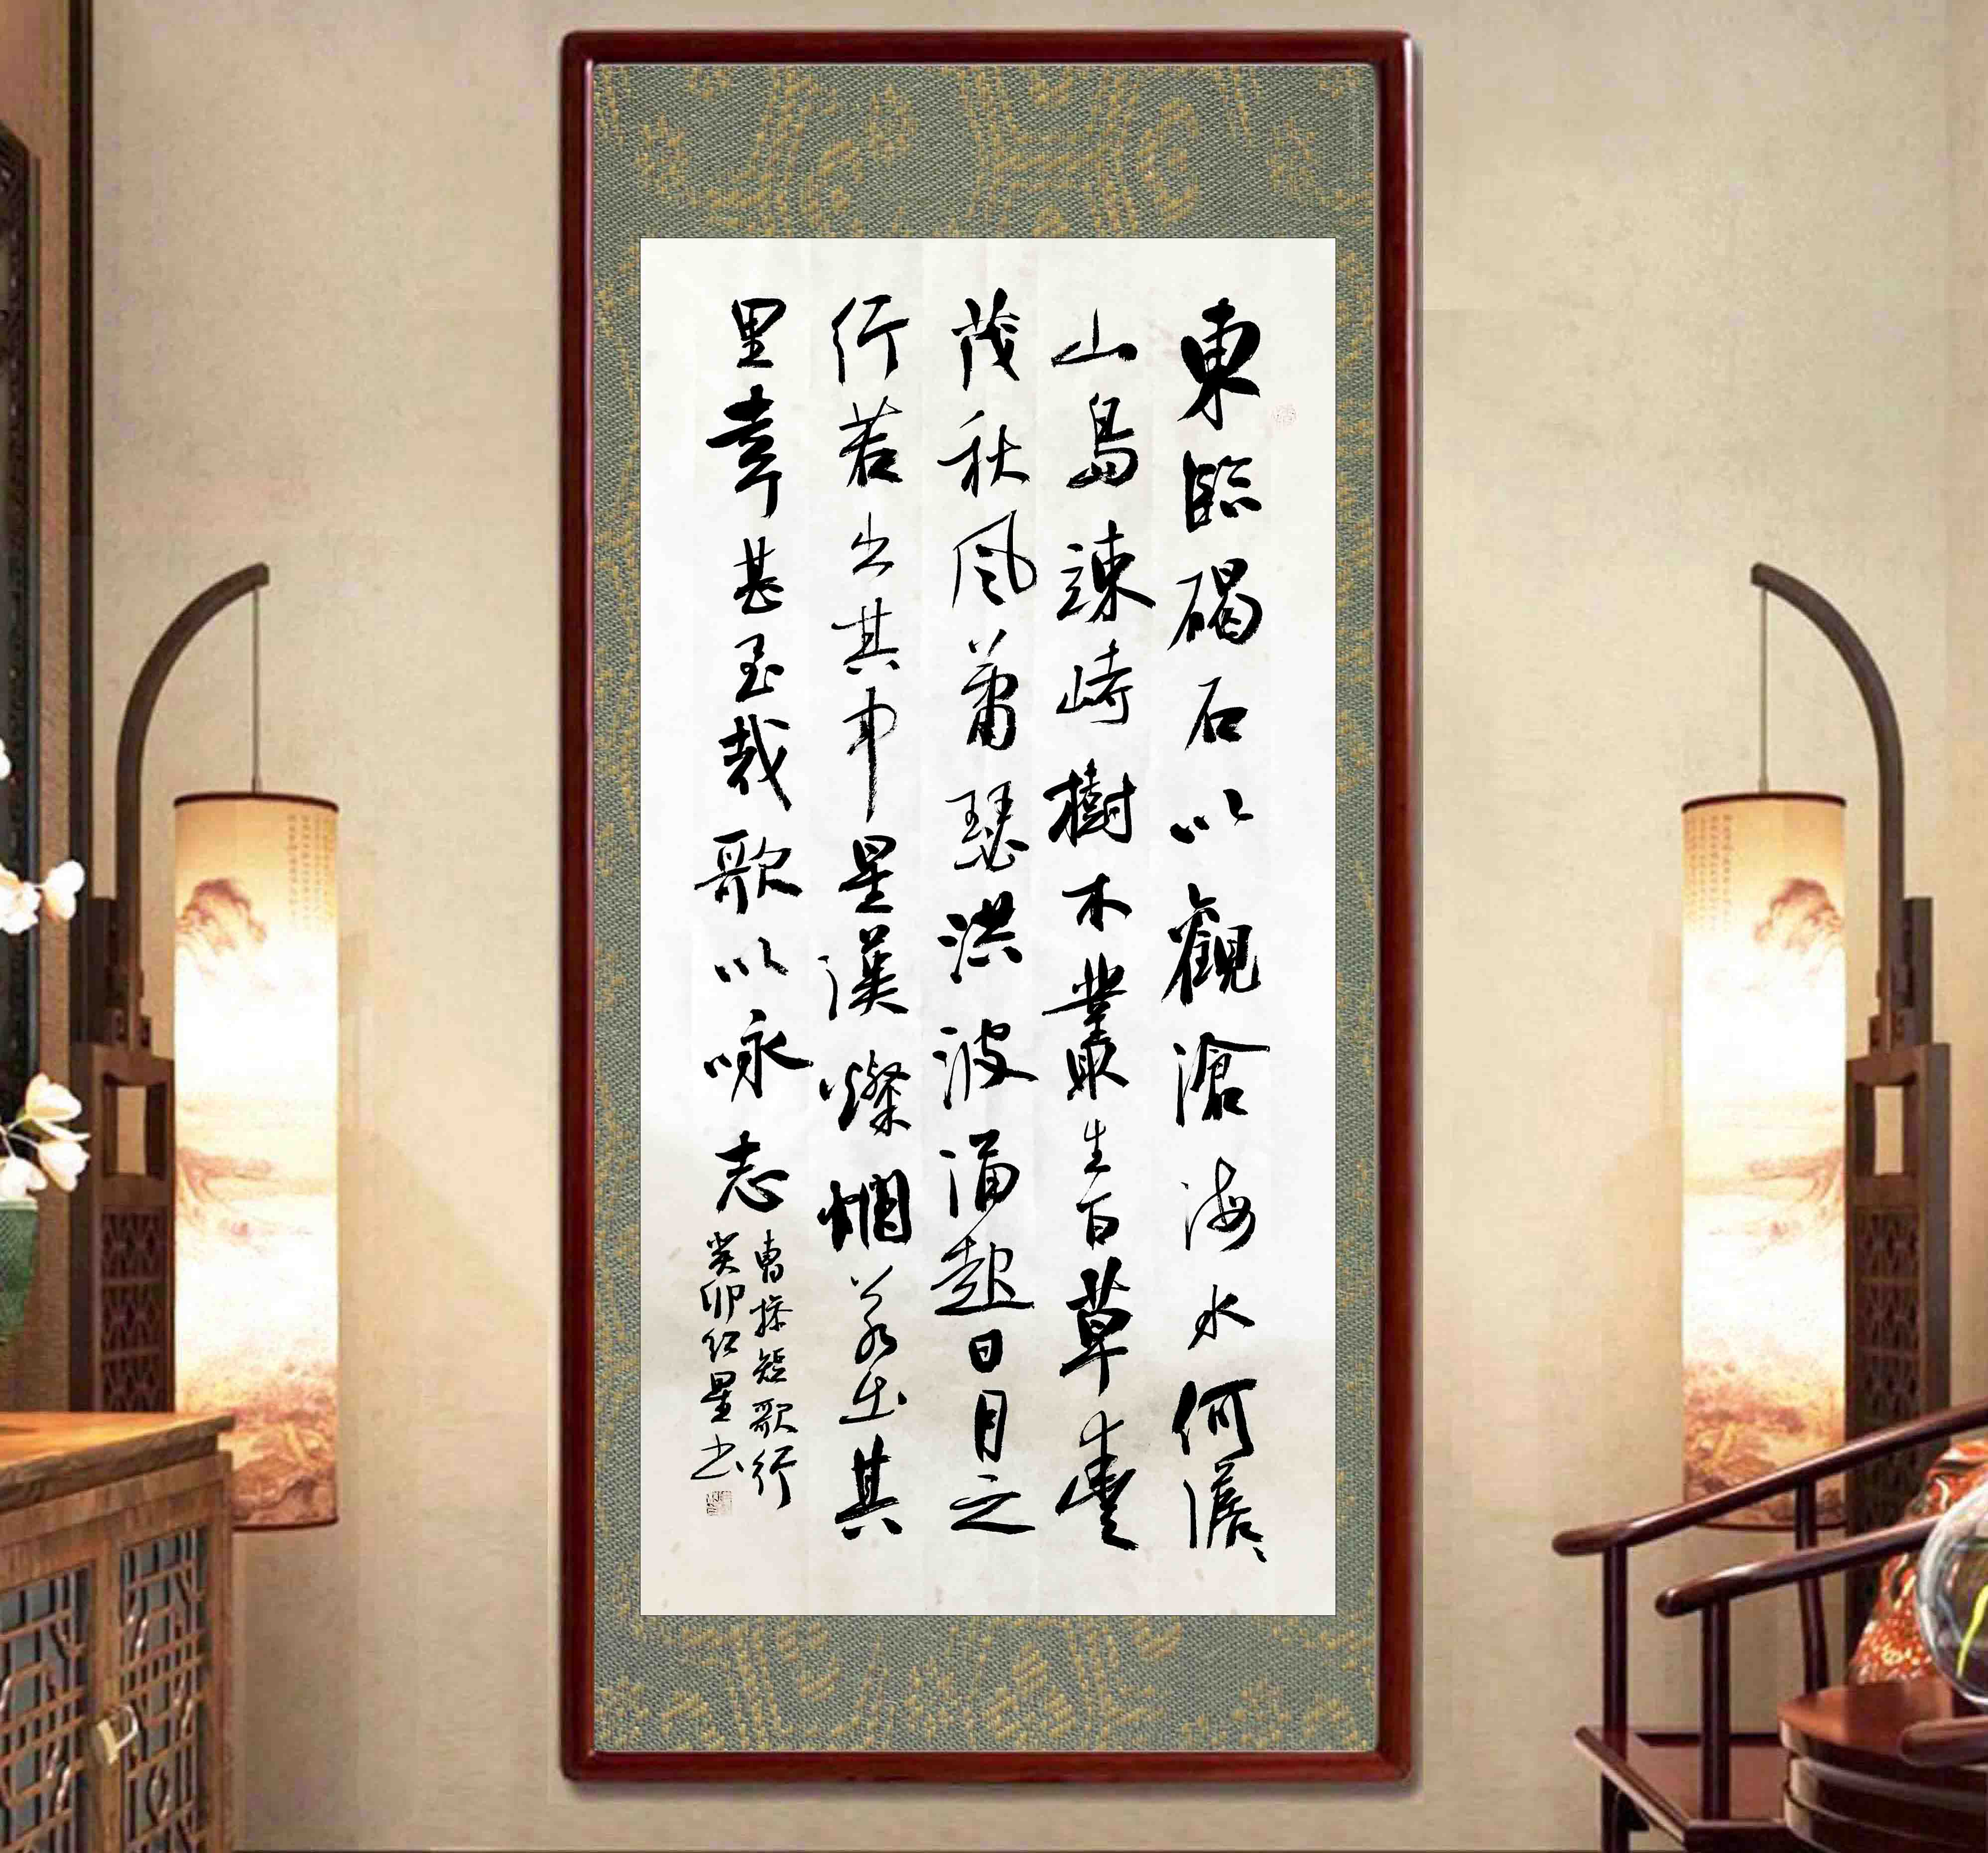 東臨碣石以觀滄海水何澹
山島竦峙樹木叢生百草豐
茂秋風蕭瑟洪波涌起日月之
行若出其中星漢燦爛若出其
里幸甚至哉歌以咏志
曹操短歌行
癸卯红星书